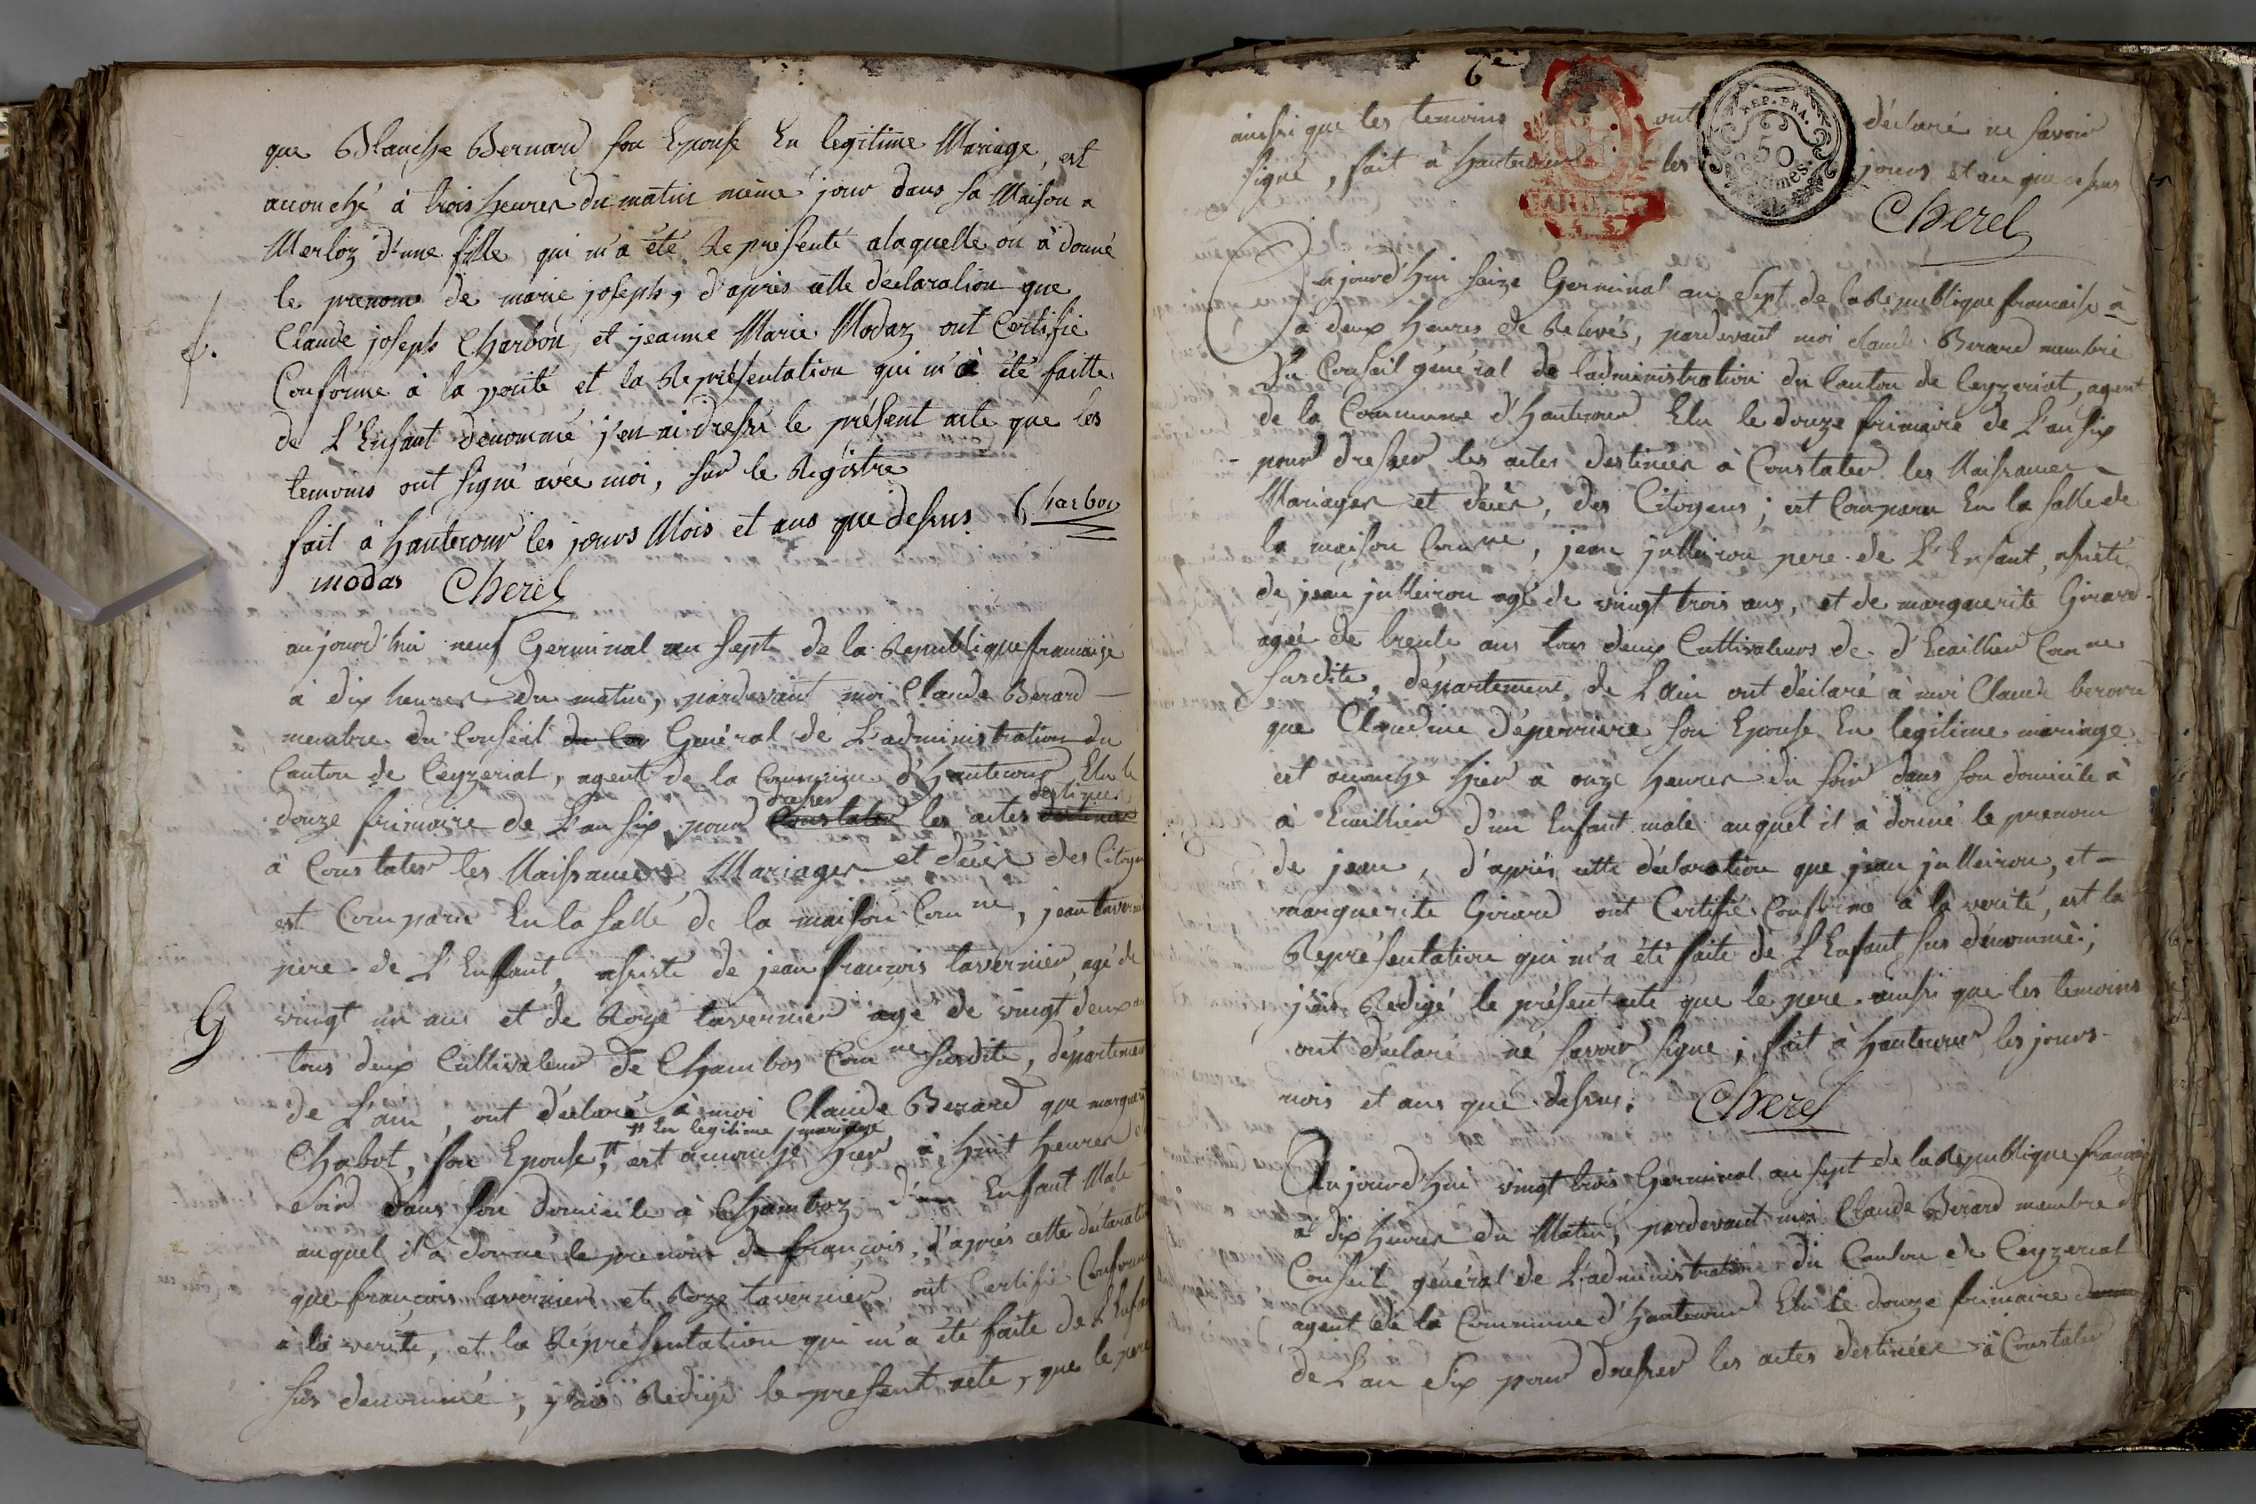 que Blanche Bernard son Epouse En legitime Mariage, est
accouché à trois heures du matin même jour dans sa Maison a
Merloz d'une fille qui m'a été Représenté alaquelle on à donné
le prenoms de marie joseph, d'après cette déclaration que
Claude joseph Charbon et jeanne Marie Modaz ont Certifie
Conforme à la verité et la Représentation qui m'à été faitte
de L'Enfant dénommé j'en ai dressé le présent acte que les
temoins ont signé avec moi, sur le Régistre
fait à hautecour les jours Mois et ans que dessus Charbon
modas Cherel
f.
aujourd'hui neuf Germinal an sept de la Republique francaise
à dix heures du matin, pardevant moi Claude Berard
membre du Conseil du Con Genéral de L'administration du
Canton de Ceyzeriat, agent de la Commune d'Hautecour Elu le
dresser destinées
douze frimaire de L'an six pour Constater les actes destinées
à Constater les Naissances Mariages et décès des Citoyens
est Comparu En la salle de la maison Comne, jean tavernier
pere de L'Enfant, assisté de jean françois tavernier, agé de
vingt un ans et de Roze tavernier agé de vingt deux ans
G
tous deux Cultivateur de Chambos Comne susdite, département
de L'ain, ont déclaré à moi Claude Berard que marguerite
" En legitime mariage
Chabot, son Epouse, " est accouché hier à huit heures
soir dans son domicile à Chamboz d'un Enfant Male
auquel il à donné le prenom de françois, d'après cette déclaration
que françois tavernier et Roze tavernier ont Certifié Conforme
à la verité, et la Représentation qui m'a été faite de L'Enfant
sus dénommé, j'ais Redigé le present acte, que le pere
6e
ainssi que les temoins ont déclaré ne savoir
signé, fait à hautecour les jours et an que dessus
REP. FRA.
50
Centimes.
Cherel
Aujourd'hui seize Germinal an sept de la Republique francaise à
à deux heures de Relevés, pardevant moi claude Berard membre
du Conseil général de l'administration du Canton de Ceyzeriat, agent
de la Commune d'Hautecour Elu le douze frimaire de L'an six
pour dresser les actes destinées à Constater les Naissances
Mariages et décès, des Citoyens; est Comparu En la salle de
la maison Comne, jean jullieron pere de L'Enfant, assisté
de jean jullieron agé de vingt trois ans, et de marguerite Girard
agée de trente ans tous deux Cultivateurs de d'Ecaillier Comne
susdite, département de L'ain ont déclaré à moi Claude berard
que Claudine d'épervrire son Epouse En legitime mariage
est accouché hier à onze heures du soir dans son domicile à
à Ecaillier d'un Enfant male auquel il à donné le prenom
de jean, d'après cette déclaration que jean jullieron, et
marguerite Girard ont Certifié Conforme à la verité, est la
Représentation qui m'a été faite de L'Enfant sus dénommé;
j'ais Redigé le présent acte que le pere ainssi que les temoins
ont déclaré né savoir signe; fait à Hautecour les jours
mois et ans que dessus. Cherel
Aujourd'hui vingt trois Germinal an sept de la Republique française
à dix heures du Matin, pardevant moi Claude Berard membre du
Conseil général de L'administration du Canton de Ceyzeriat
agent de la Commune d'Hautecour Elu le douze frimaire
de L'an Six pour dresser les actes destinées à Constater